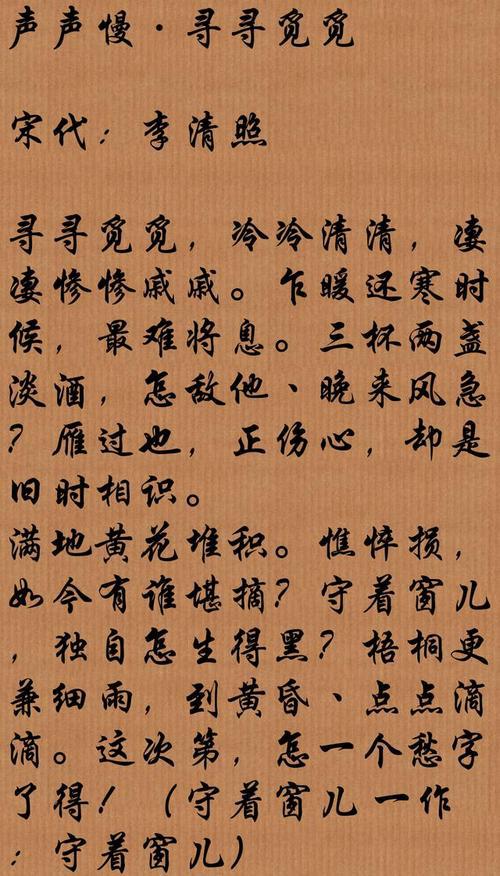 声声慢·寻寻觅觅
宋代：李清照
寻寻觅觅，冷冷清清，凄
凄惨惨戚戚。乍暖还寒时
候，最难将息。三杯两盏
淡酒，怎敌他、晚来风急
？雁过也，正伤心，却是
旧时相识。
满地黄花堆积。憔悴损，
如今有谁堪摘？守着窗儿
，独自怎生得黑？梧桐更
兼细雨，到黄昏、点点滴
滴。这次第，怎一个愁字
了得！（守着窗儿一作
：守着窗儿）